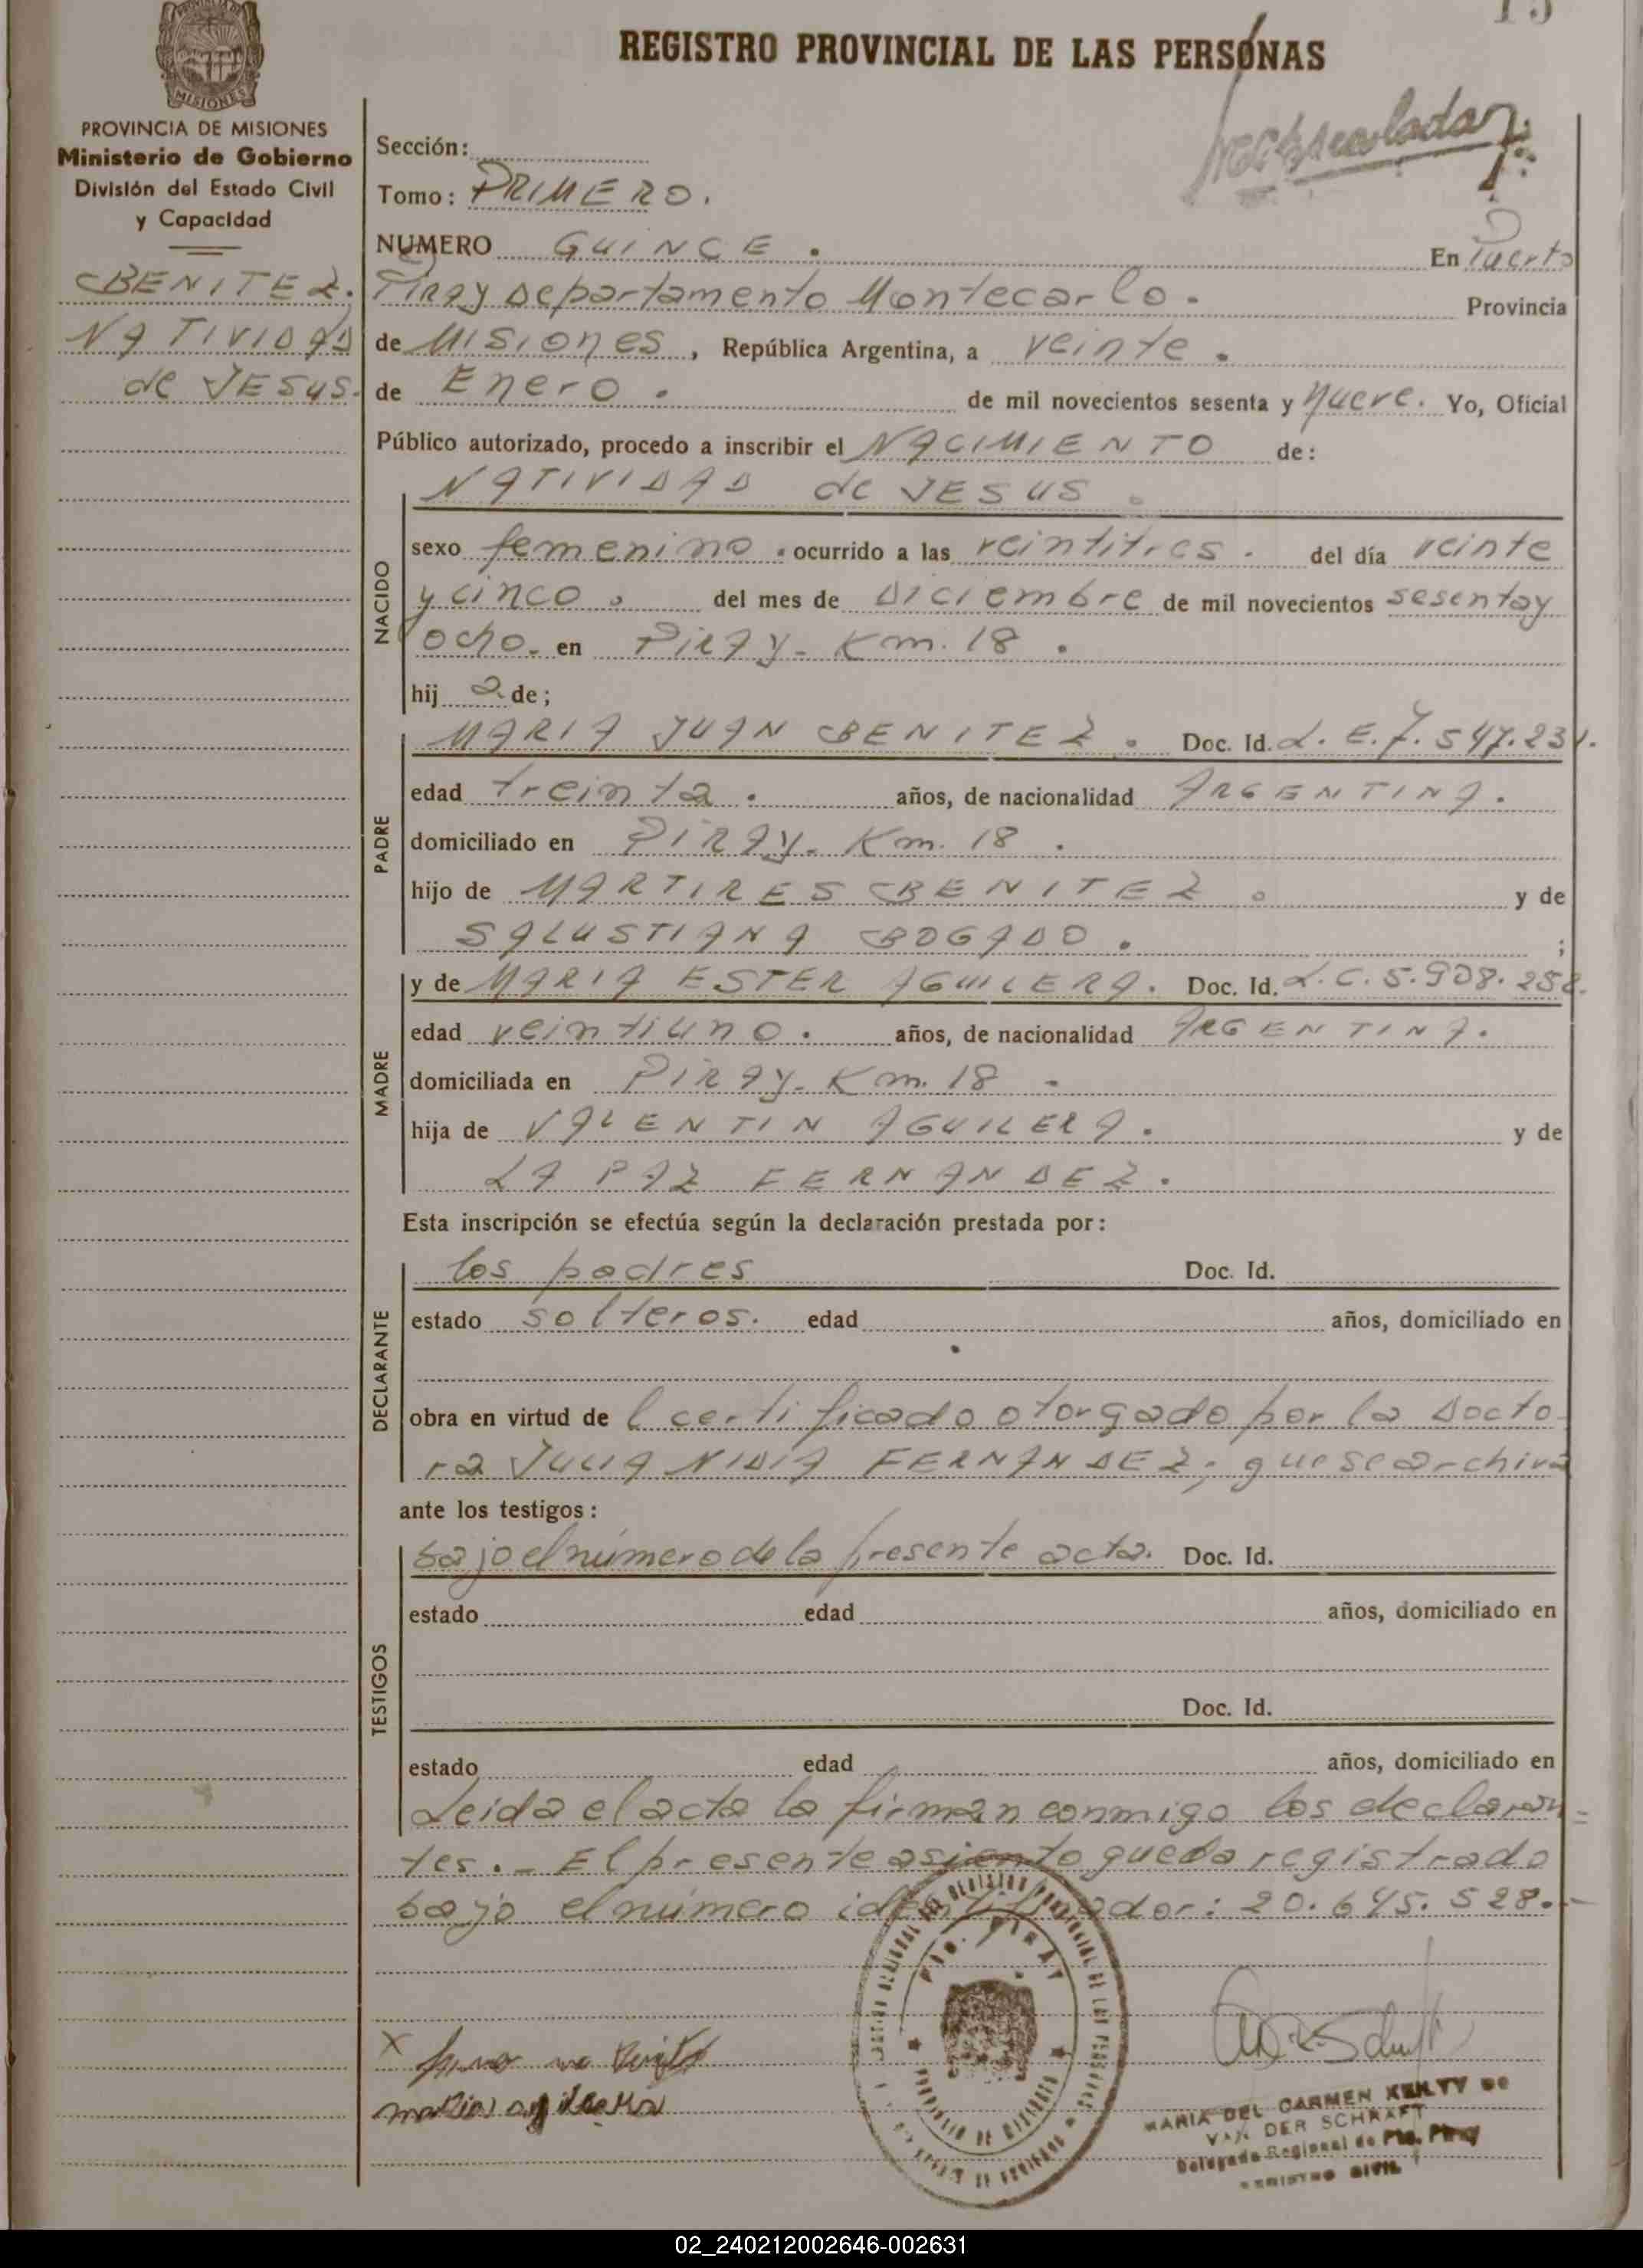 15
REGISTRO PROVINCIAL DE LAS PERSONAS
MISIONES
PROVINCIA DE MISIONES
Ministerio de Gobierno
División del Estado Civil
y Capacidad
BENITEZ.
NATIVIDAD
de JESUS.
Sección:
Tomo: PRIMERO.
NUMERO QUINCE. En Puerto
Piray Departamento Montecarlo. Provincia
de Misiones, República Argentina, a veinte.
de Enero. de mil novecientos sesenta y nueve. Yo, Oficial
Público autorizado, procedo a inscribir el NACIMIENTO de:
NACIDO
NATIVIDAD de JESUS.
sexo femenino. ocurrido a las veintitres. del día veinte
y cinco. del mes de Diciembre de mil novecientos sesenta y
ocho. en Piray- Km. 18.
hij a de;
PADRE
MARIA JUAN BENITEZ. Doc. Id. L. E. 7.547.231.
edad treinta. años, de nacionalidad ARGENTINA.
domiciliado en PIRAY- Km. 18.
hijo de MARTIRES BENITEZ. y de
SALUSTIANA BOGADO. ;
MADRE
y de MARIA ESTER AGUILERA. Doc. Id. L.C. 5.908.258.
edad veintiuno. años, de nacionalidad ARGENTINA.
domiciliada en PIRAY- Km. 18-
hija de VALENTIN AGUILERA. y de
LA PAZ FERNANDEZ.
Esta inscripción se efectúa según la declaración prestada por:
DECLARANTE
los padres Doc. Id.
estado solteros. edad años, domiciliado en
obra en virtud de l certificado otorgado por la Docto-
ra JULIA NIDIA FERNANDEZ; que se archiva
ante los testigos:
TESTIGOS
bajo el número de la presente acta. Doc. Id.
estado edad años, domiciliado en
Doc. Id.
estado edad años, domiciliado en
Leida el acta la firman conmigo los declaran=
tes.- El presente asiento queda registrado
bajo el número identificador: 20.645.528.-
PTO. PIRAY
PROVINCIA DE MISIONES
maria aguilera
MARIA DEL CARMEN KEILTY DE
VAN DER SCHRAFT
Delegada Regional de Pto. Piray
REGISTRO CIVIL
02_240212002646-002631